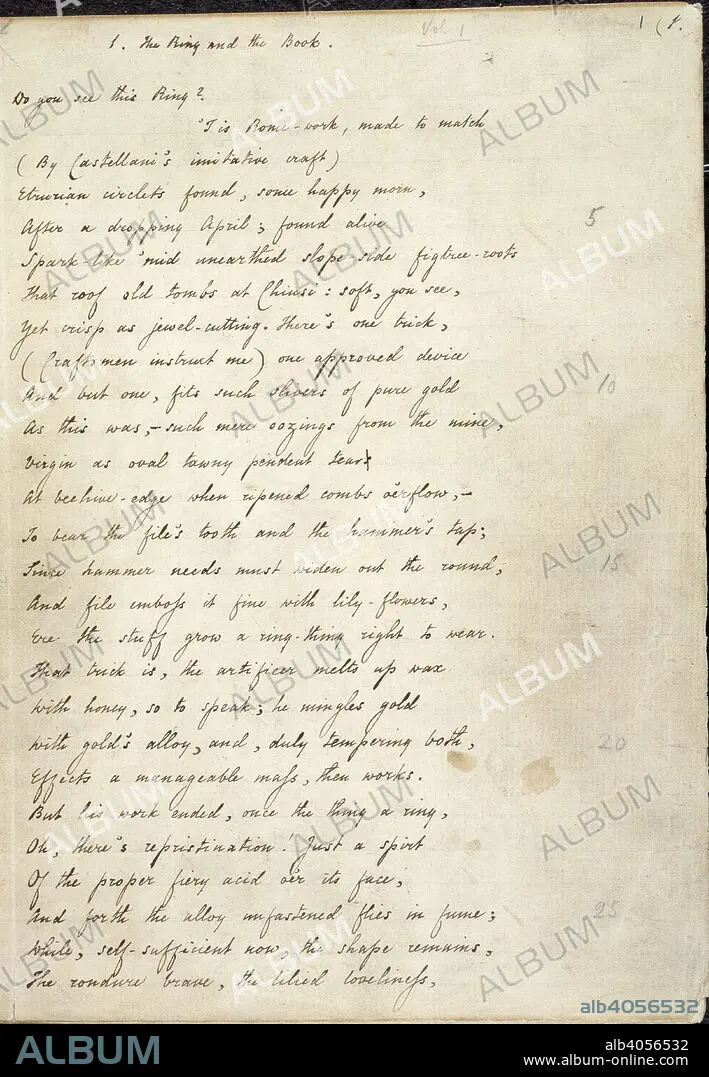 Vol 1
1 (1.
1. The Ring and the Book.
Do you see this Ring?
'Tis Rome-work, made to match
(By Castellani's imitative craft)
Etrurian circlets found, some happy morn,
After a dropping April; found alive
Spark-like 'mid unearthed slope-side figtree-roots
That roof old tombs at Chiusi: soft, you see,
Yet crisp as jewel-cutting. There's one trick,
(Craftsmen instruct me) one approved device
And but one, fits such slivers of pure gold
As this was,—such mere oozings from the mine,
Virgin as oval tawny pendent tear
At beehive-edge when ripened combs o'erflow,—
To bear the file's tooth and the hammer's tap;
Since hammer needs must widen out the round,
And file emboss it fine with lily-flowers,
Ere the stuff grow a ring-thing right to wear.
That trick is, the artificer melts up wax
With honey, so to speak; he mingles gold
With gold's alloy, and, duly tempering both,
Effects a manageable mass, then works.
But his work ended, once the thing a ring,
Oh, there's repristination! Just a spirt
Of the proper fiery acid o'er its face,
And forth the alloy unfastened flies in fume;
While, self-sufficient now, the shape remains,
The rondure brave, the lilied loveliness,
5
10
15
20
25
ALBUM
alb4056532
ALBUM
alb4056532
www.album-online.com